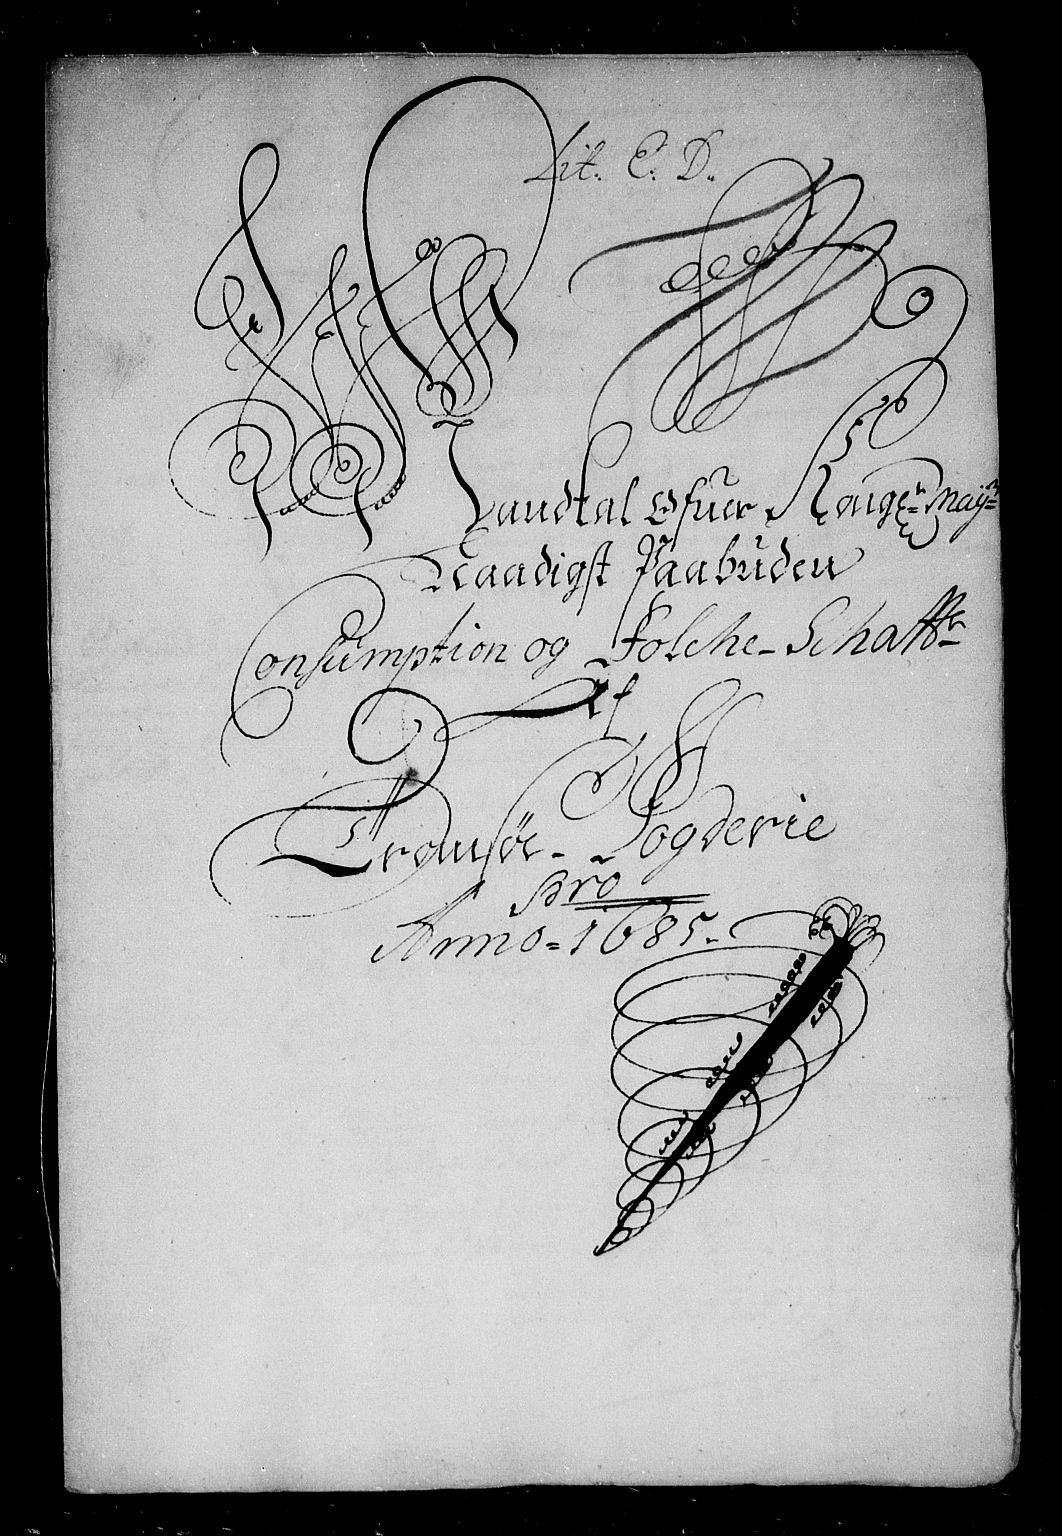 Lit. C: D.
Mandtal Ofuer Kongl: Maÿ:
Naadigst Paabuden
Consumption og Folche-Schatt
Af
Tromsøe-Fogderie
Pro
Anno=1685.